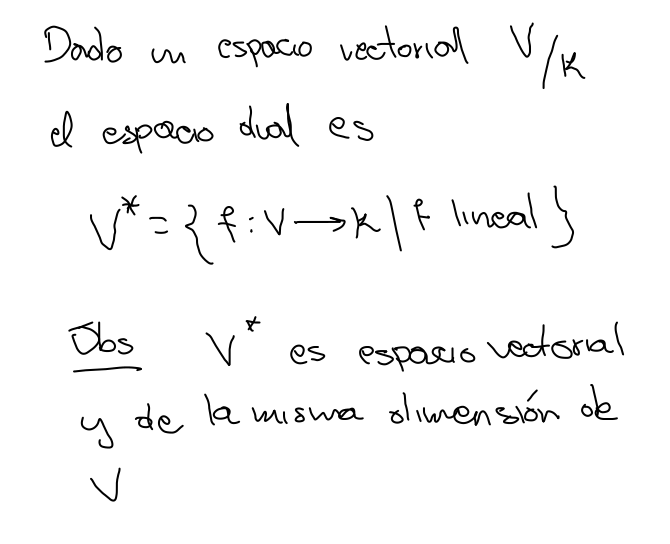 Dado un espacio vectorial V/K
el espacio dual es
V* = { f : V → K | f lineal }
Obs V* es espacio vectorial
y de la misma dimensión de
V